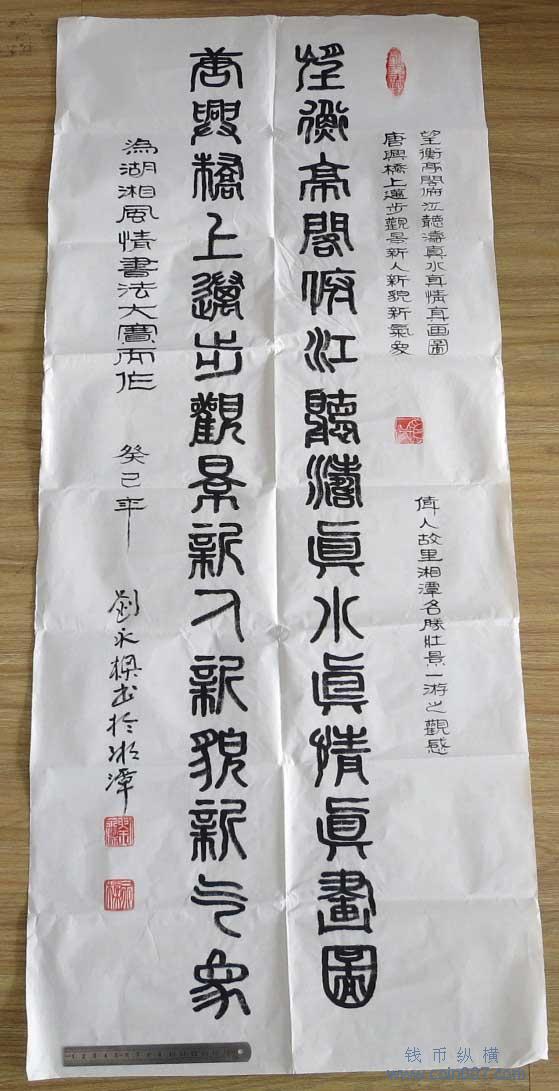 望衡亭閣俯江聽濤真水真情真画圖
唐興橋上邁步觀景新人新貌新氣象
偉人故里湘潭名勝壯景一游之觀感
望衡亭閣俯江聽濤眞水眞情眞畫圖
唐興橋上邁步觀景新人新貌新气象
為湖湘風情書法大賽而作
癸巳年
劉永樑書於湘潭
钱币纵横
www.coin007.com